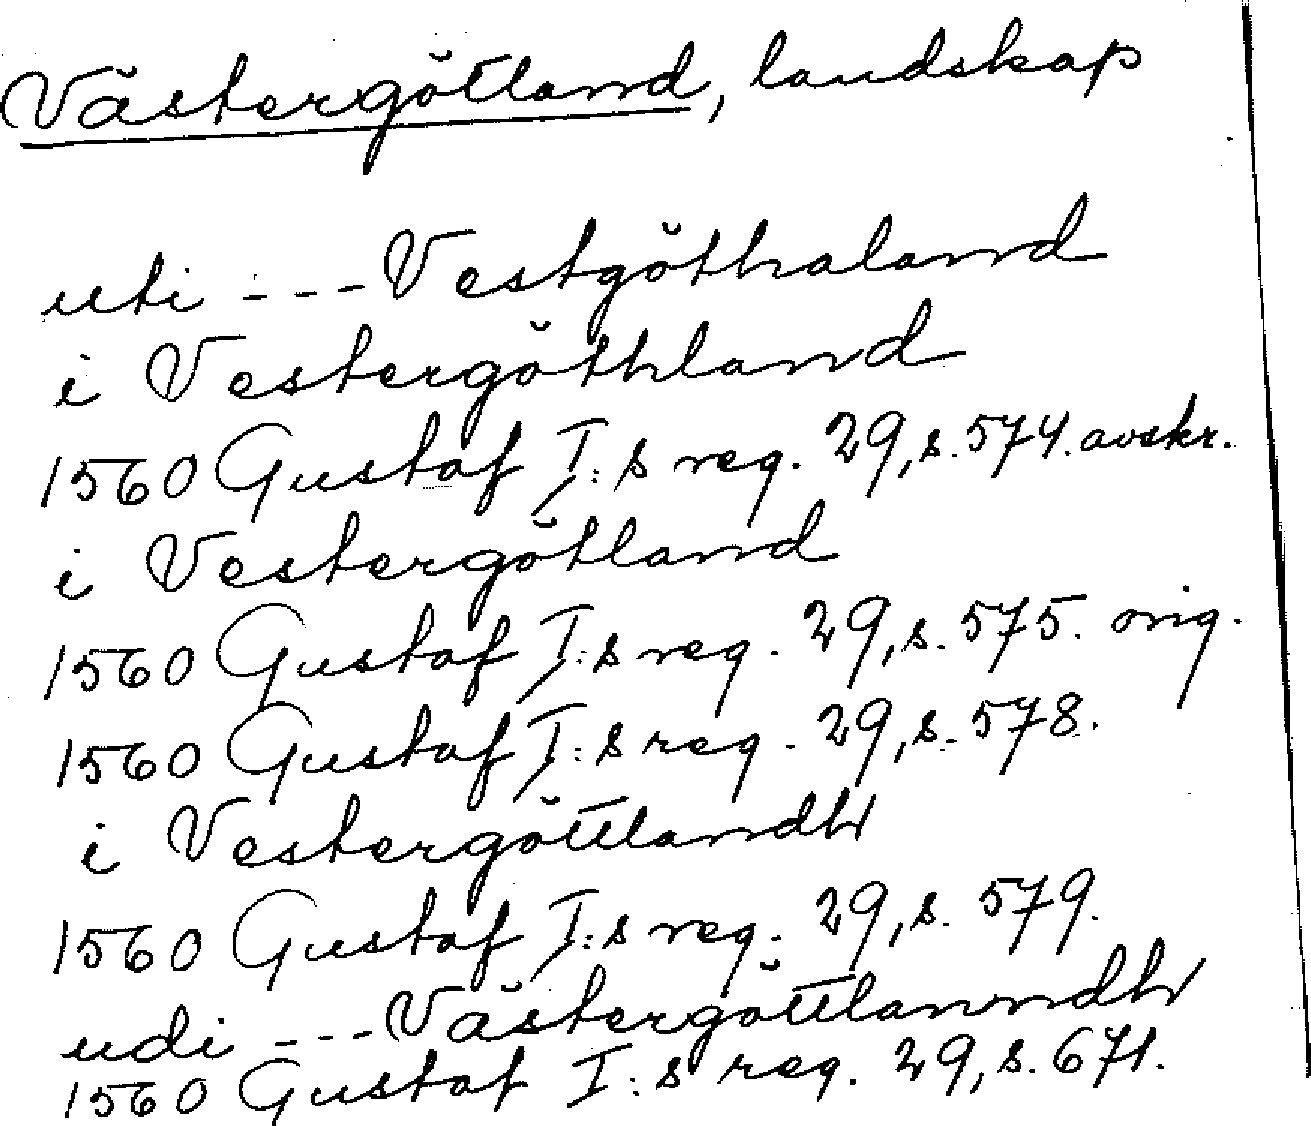 Västergötland, landskap
uti --- Vestgöthaland
i Vestergöthland
1560 Gustaf I:s reg. 29, s. 574. avskr.
i Vestergötland
1560 Gustaf I:s reg. 29, s. 575. orig.
1560 Gustaf I:s reg. 29, s. 578.
i Vestergöttlandh
1560 Gustaf I:s reg. 29, s. 579.
udi --- Västergöttlanndh
1560 Gustaf I:s reg. 29, s. 671.